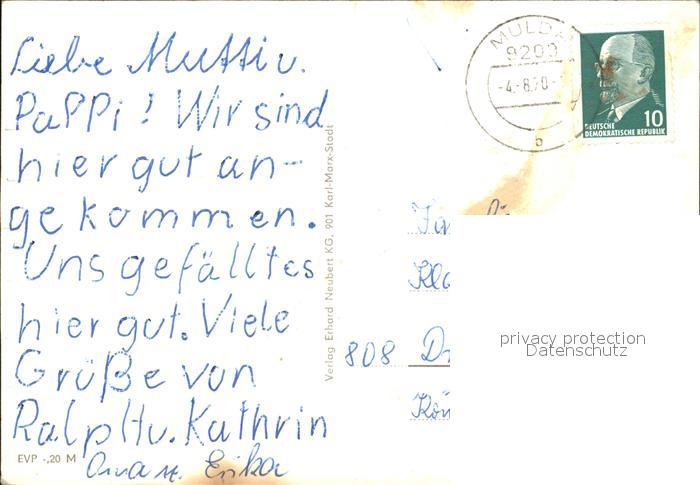 Liebe Mutti u.
Pappi! Wir sind
hier gut an-
gekommen.
Uns gefällt es
hier gut. Viele
Grüße von
Ralph u. Kathrin
Oma u. Erika
EVP -,20 M
Verlag Erhard Neubert KG, 901 Karl-Marx-Stadt
MULDA
9209
-4.-8.70-
b
10
DEUTSCHE
DEMOKRATISCHE REPUBLIK
808
privacy protection
Datenschutz